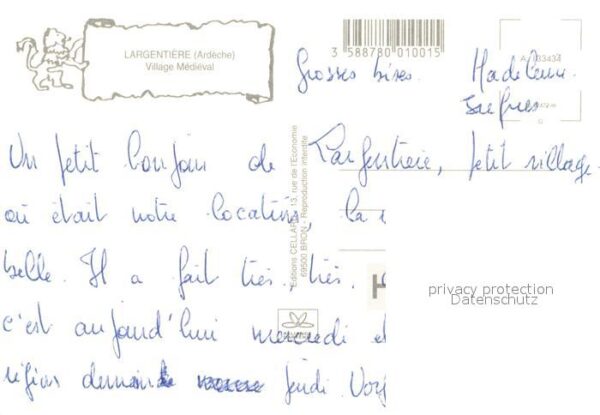 LARGENTIÈRE (Ardèche)
Village Médiéval
3 588780 010015
Grosses bises. Madeleine
Jacques
Un petit bonjour de Largentière, petit village
où était notre location, la
belle. Il a fait très, très.
c'est aujourd'hui mercredi et
région demain jeudi.
Editions CELLARD - 13, rue de l'Economie
69500 BRON - Reproduction interdite
privacy protection
Datenschutz